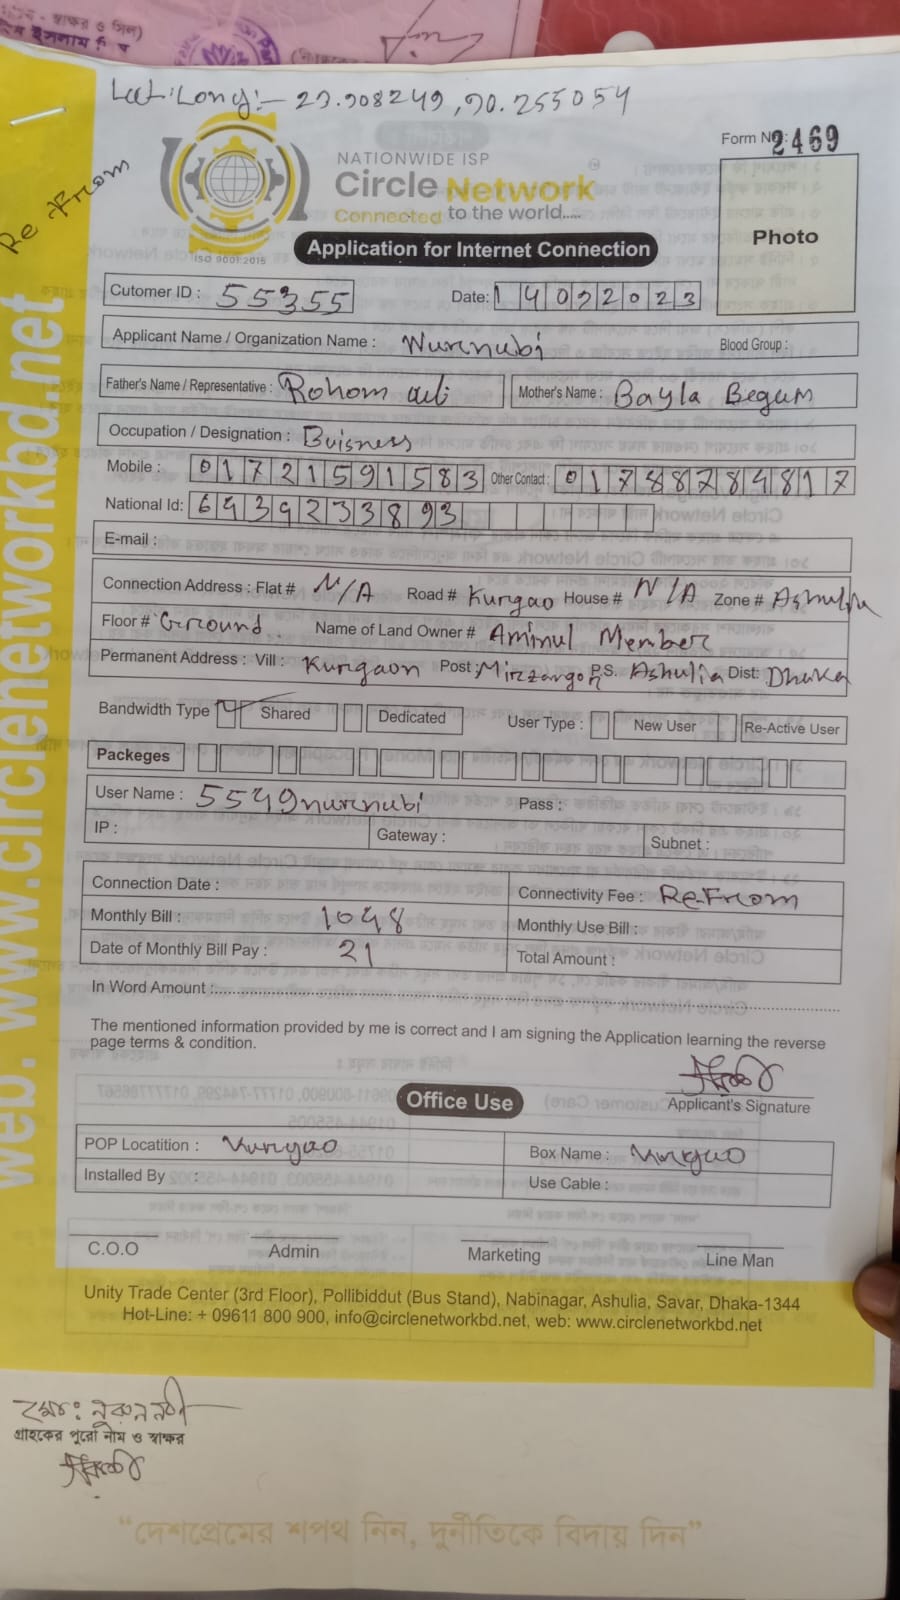 Lat:Long:- 23.908249, 90.255054
Form No: 2469
Re From
NATIONWIDE ISP
Circle Network
Connected to the world.....
ISO 9001:2015
Photo
Application for Internet Connection
Cutomer ID : 55355 Date: 14022023
Applicant Name / Organization Name : Nurnubi Blood Group :
Father's Name / Representative : Rohom ali Mother's Name : Bayla Begum
Occupation / Designation : Buisness
Mobile : 01721591583 Other Contact : 01788784817
National Id: 6439233893
E-mail :
Connection Address : Flat # N/A Road # Kurgao House # N/A Zone # Ashulia
Floor # Ground Name of Land Owner # Aminul Member
Permanent Address : Vill : Kurgaon Post : Mirzangor P.S. Ashulia Dist: Dhaka
Bandwidth Type Shared Dedicated User Type : New User Re-Active User
Packeges
User Name : 5549nurnubi Pass :
IP : Gateway : Subnet :
Connection Date : Connectivity Fee : Re-From
Monthly Bill : 1048 Monthly Use Bill :
Date of Monthly Bill Pay : 21 Total Amount :
In Word Amount :
The mentioned information provided by me is correct and I am signing the Application learning the reverse
page terms & condition.
Applicant's Signature
Office Use
POP Locatition : Kurgao Box Name : Kurgao
Installed By : Use Cable :
C.O.O Admin Marketing Line Man
Unity Trade Center (3rd Floor), Pollibiddut (Bus Stand), Nabinagar, Ashulia, Savar, Dhaka-1344
Hot-Line: + 09611 800 900, info@circlenetworkbd.net, web: www.circlenetworkbd.net
web: www.circlenetworkbd.net
মোঃ নুরুনবী
গ্রাহকের পুরো নাম ও স্বাক্ষর
“দেশপ্রেমের শপথ নিন, দুর্নীতিকে বিদায় দিন”